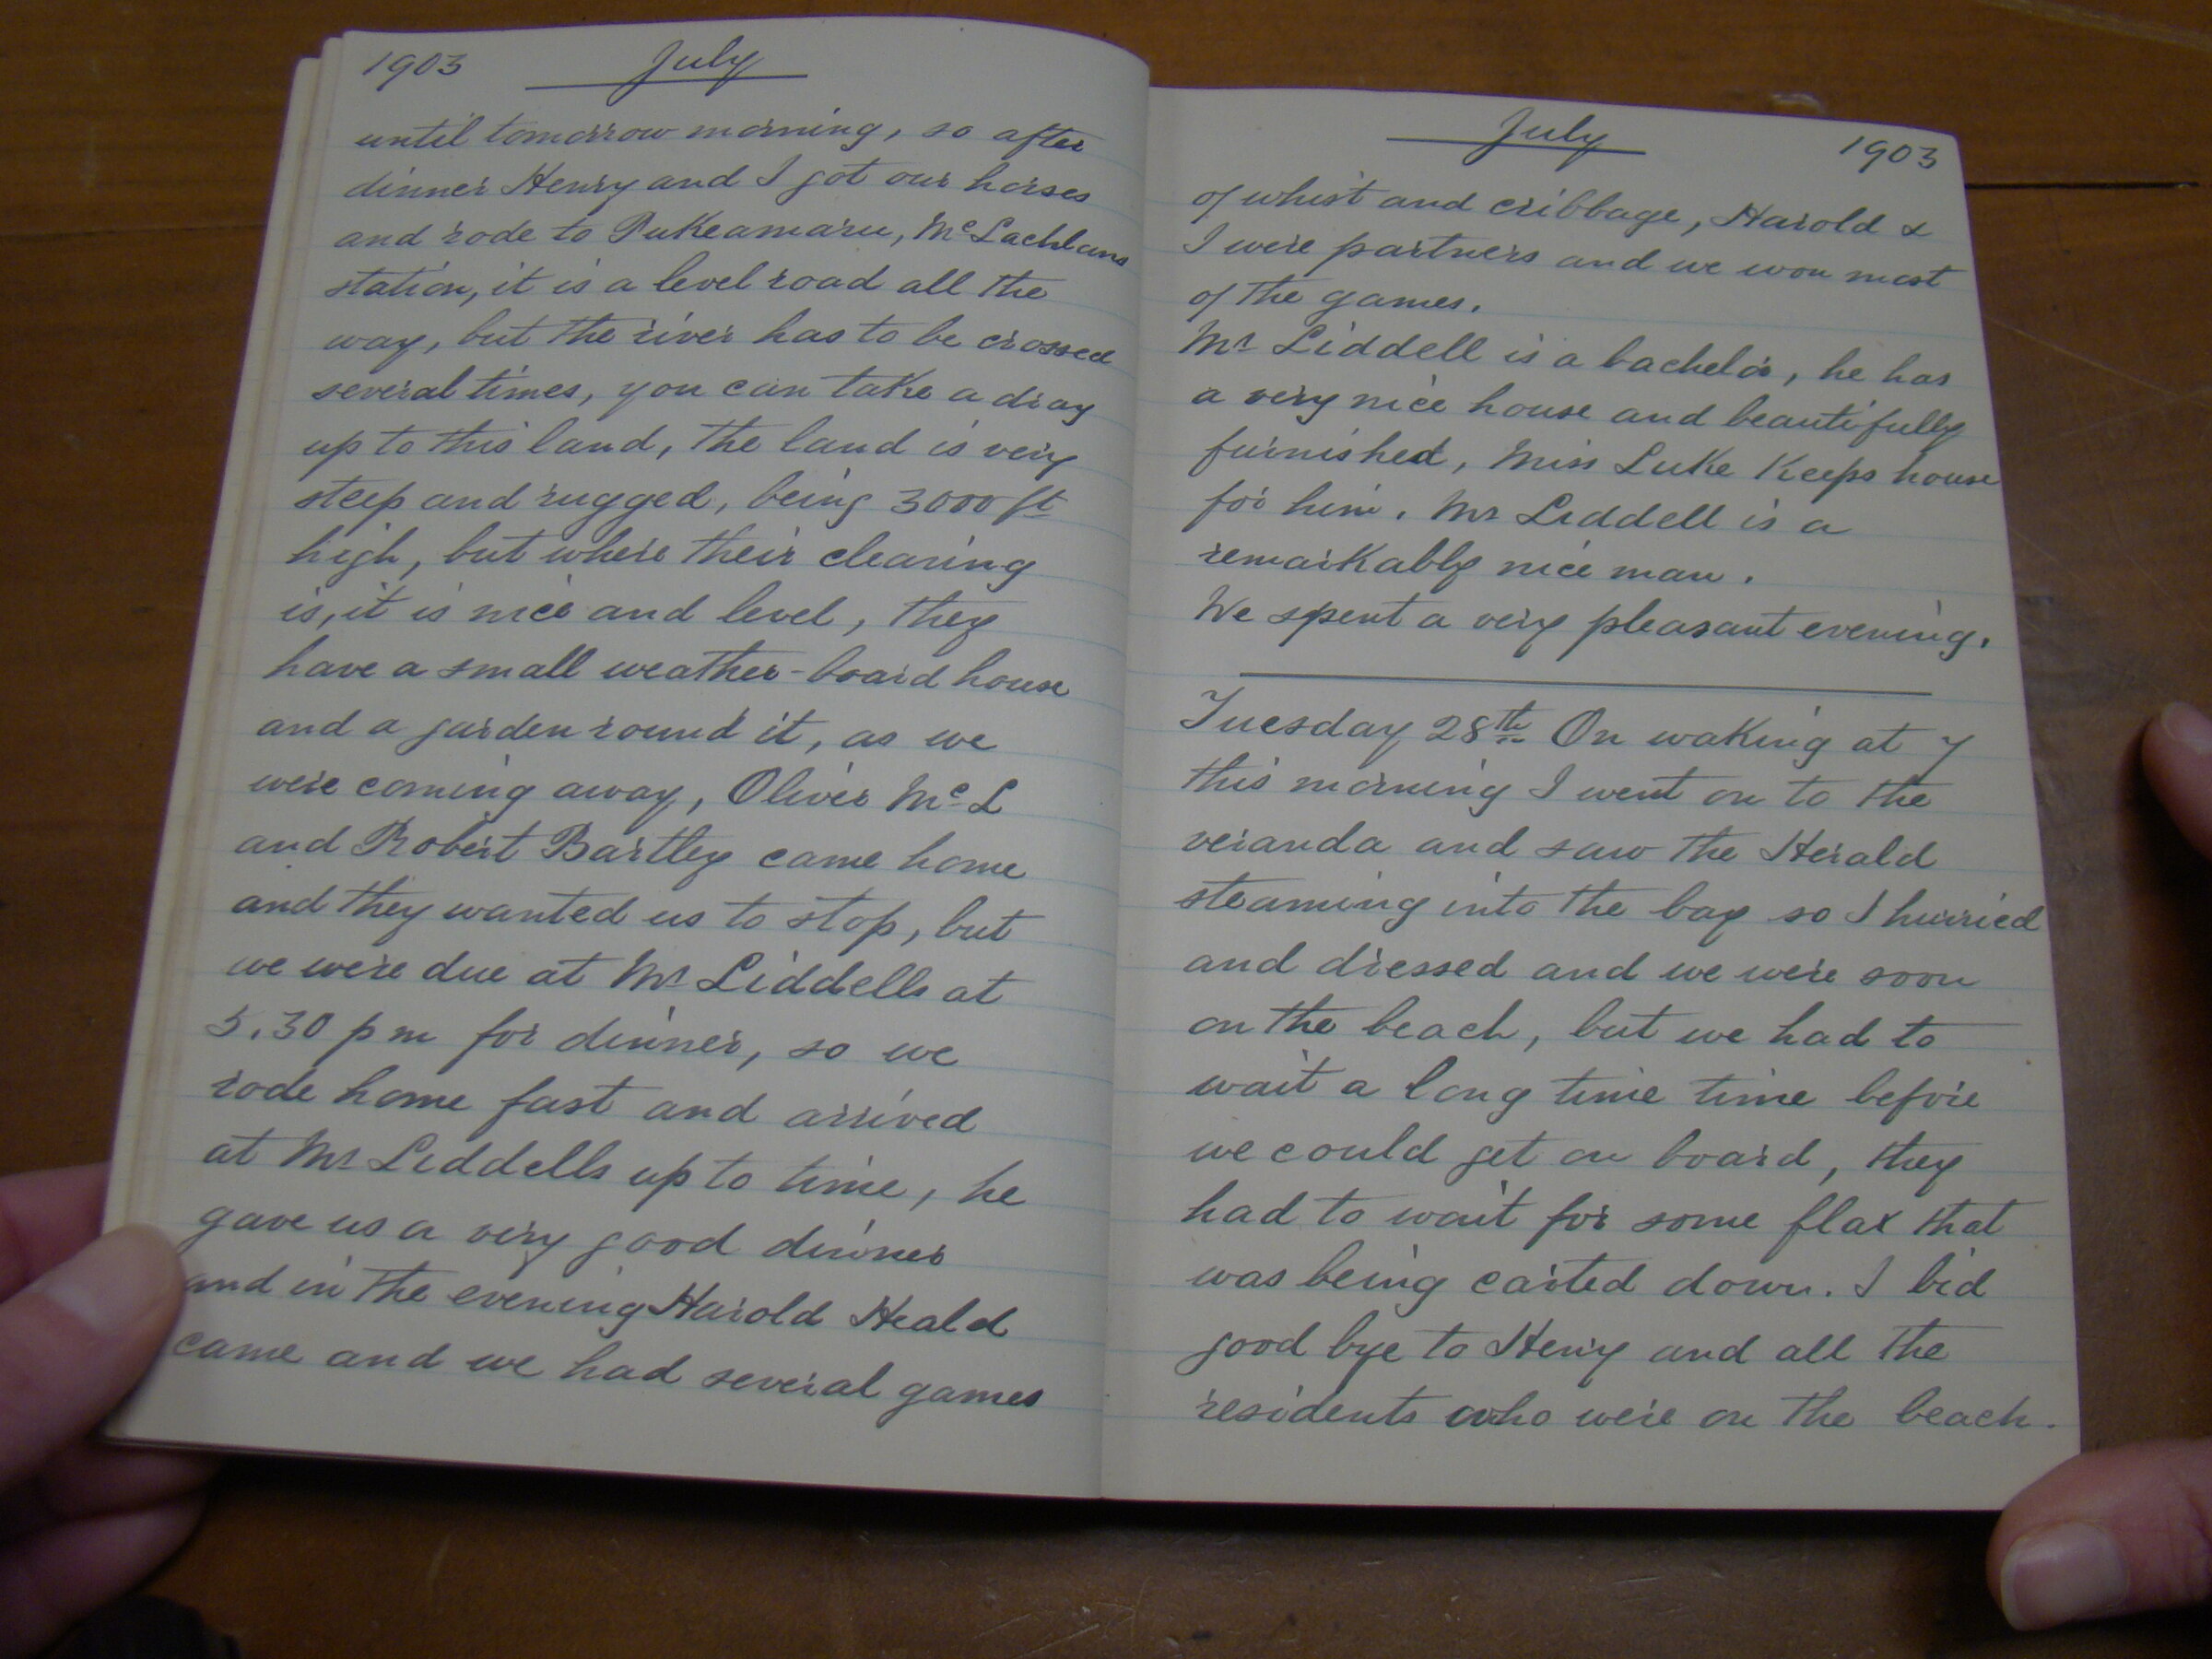 1903 July
until tomorrow morning, so after
dinner Henry and I got our horses
and rode to Pukeamaru, McLachlans
station, it is a level road all the
way, but the river has to be crossed
several times, you can take a dray
up to this land, the land is very
steep and rugged, being 3000 ft
high, but where their clearing
is, it is nice and level, they
have a small weather-board house
and a garden round it, as we
were coming away, Oliver McL
and Robert Bartley came home
and they wanted us to stop, but
we were due at Mr Liddells at
5.30 pm for dinner, so we
rode home fast and arrived
at Mr Liddells up to time, he
gave us a very good dinner
and in the evening Harold Heald
came and we had several games
July 1903
of whist and cribbage, Harold &
I were partners and we won most
of the games.
Mr Liddell is a bachelor, he has
a very nice house and beautifully
furnished, Miss Luke keeps house
for him. Mr Liddell is a
remarkably nice man.
We spent a very pleasant evening.
Tuesday 28th On waking at 7
this morning I went on to the
veranda and saw the Herald
steaming into the bay so I hurried
and dressed and we were soon
on the beach, but we had to
wait a long time time before
we could get on board, they
had to wait for some flax that
was being carted down. I bid
good bye to Henry and all the
residents who were on the beach.